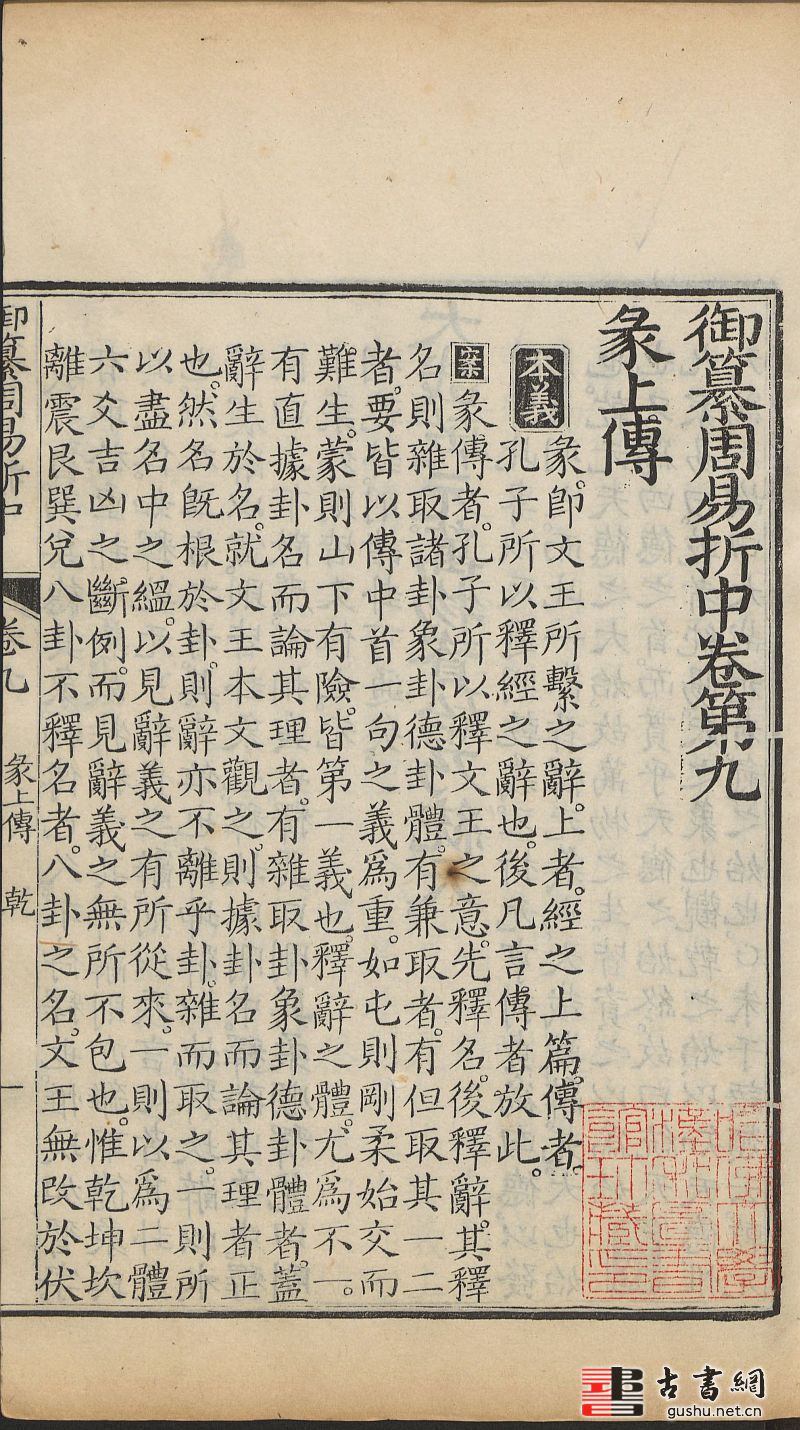 御纂周易折中卷第九
彖上傳
本義
彖。卽文王所繫之辭。上者。經之上篇。傳者。
孔子所以釋經之辭也。後凡言傳者放此。
案 彖傳者。孔子所以釋文王之意。先釋名。後釋辭。其釋
名則雜取諸卦象卦德卦體。有兼取者。有但取其一二
者。要皆以傳中首一句之義爲重。如屯則剛柔始交而
難生。蒙則山下有險。皆第一義也。釋辭之體。尤爲不一。
有直據卦名而論其理者。有雜取卦象卦德卦體者。蓋
辭生於名。就文王本文觀之。則據卦名而論其理者正
也。然名旣根於卦。則辭亦不離乎卦。雜而取之。一則所
以盡名中之縕。以見辭義之有所從來。一則以爲二體
六爻吉凶之斷例。而見辭義之無所不包也。惟乾坤坎
離震艮巽兌八卦不釋名者。八卦之名。文王無改於伏
御纂周易折中 卷九 彖上傳 乾 一
古書網
gushu.net.cn